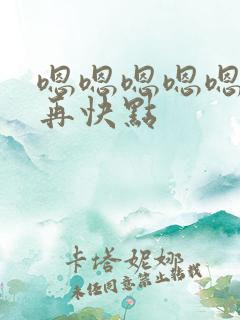 嗯嗯嗯嗯嗯
再快點
卡塔妮娜
未经同意禁止转载